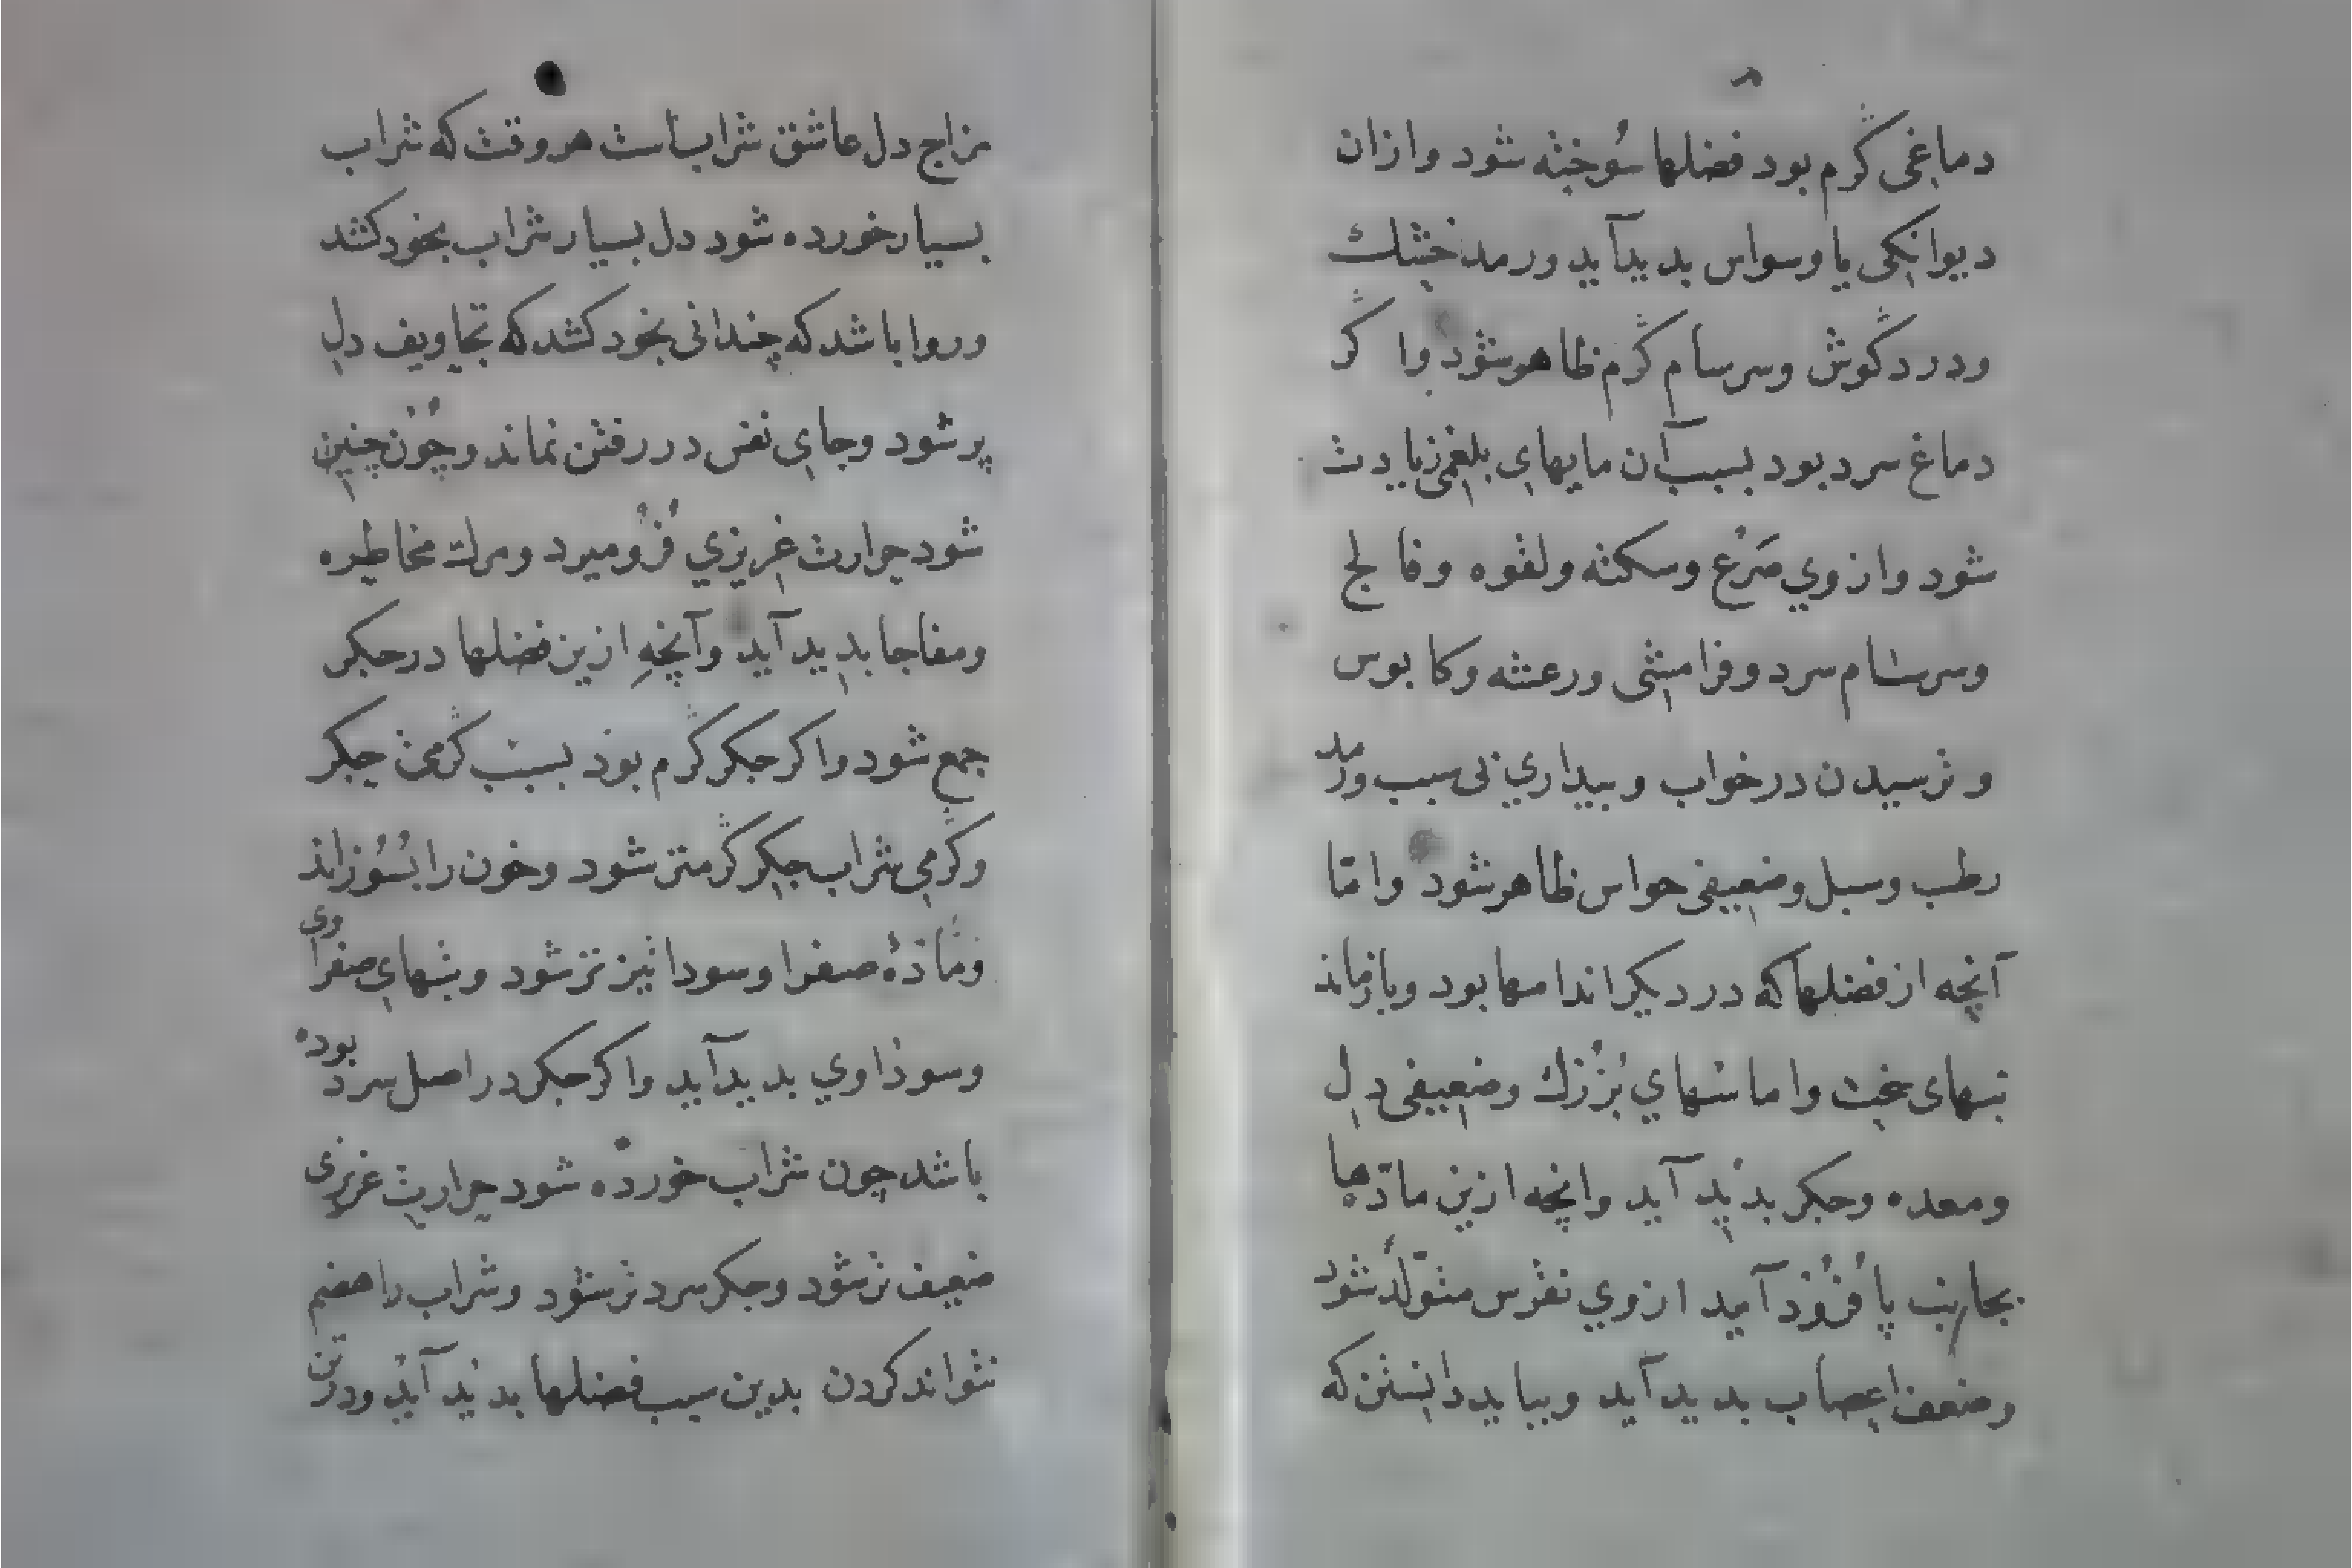 دماغی گرم بود فضلها سوخته شود وازان
دیوانکی یا وسواس بدیدآید ورمد خشك
ودرد گوش وسرسام گرم ظاهر شود واگر
دماغ سرد بود بسبب آن مایهای بلغمی زیادت
شود واز وی صَرْع وسکته ولقوه وفالج
وسرسام سرد وفرامشی ورعشه وکابوس
وترسیدن در خواب وبیداری بی سبب ورمد
رطب وسبل وضعیفی حواس ظاهر شود وامّا
آنچه از فضلها که در دیکر اندامها بود وبازماند
تبهای واماسهای بُزُرْك وضعیفی دل
ومعده وجکر بدید آید وانچه ازین مادّها
بجانب پا فُرُوْد آمید از وی نقرس متولّد شود
وضعف اعصاب بدید آید وبباید دانستن که
مزاج دل عاشق شراب است هر وقت که شراب
بسیار خورده شود دل بسیار شراب بخود کشد
وروا باشد که چندانی بخود کشد که تجاویف دل
پر شود وجای نفس در رفتن نماند وچون چنین
شود حرارت غریزی فُرُومیرد ومرك مخاطره
ومفاجا بدید آید وآنچه ازین فضلها در جکر
جمع شود واکر جکر گرم بود بسبب گرمی جکر
وگرمی شراب جکر گرمتر شود وخون را بسُوزاند
ومادّهٔ صفرا وسودا تیز تر شود وتبهای صفراوی
وسوداوی بدیدآید واکر جکر در اصل سرد بوده
باشد چون شراب خورده شود حرارت غریزی
ضعیف تر شود وجکر سرد تر شود وشراب را هضم
نتواند کردن بدین سبب فضلها بدید آید ودر تن